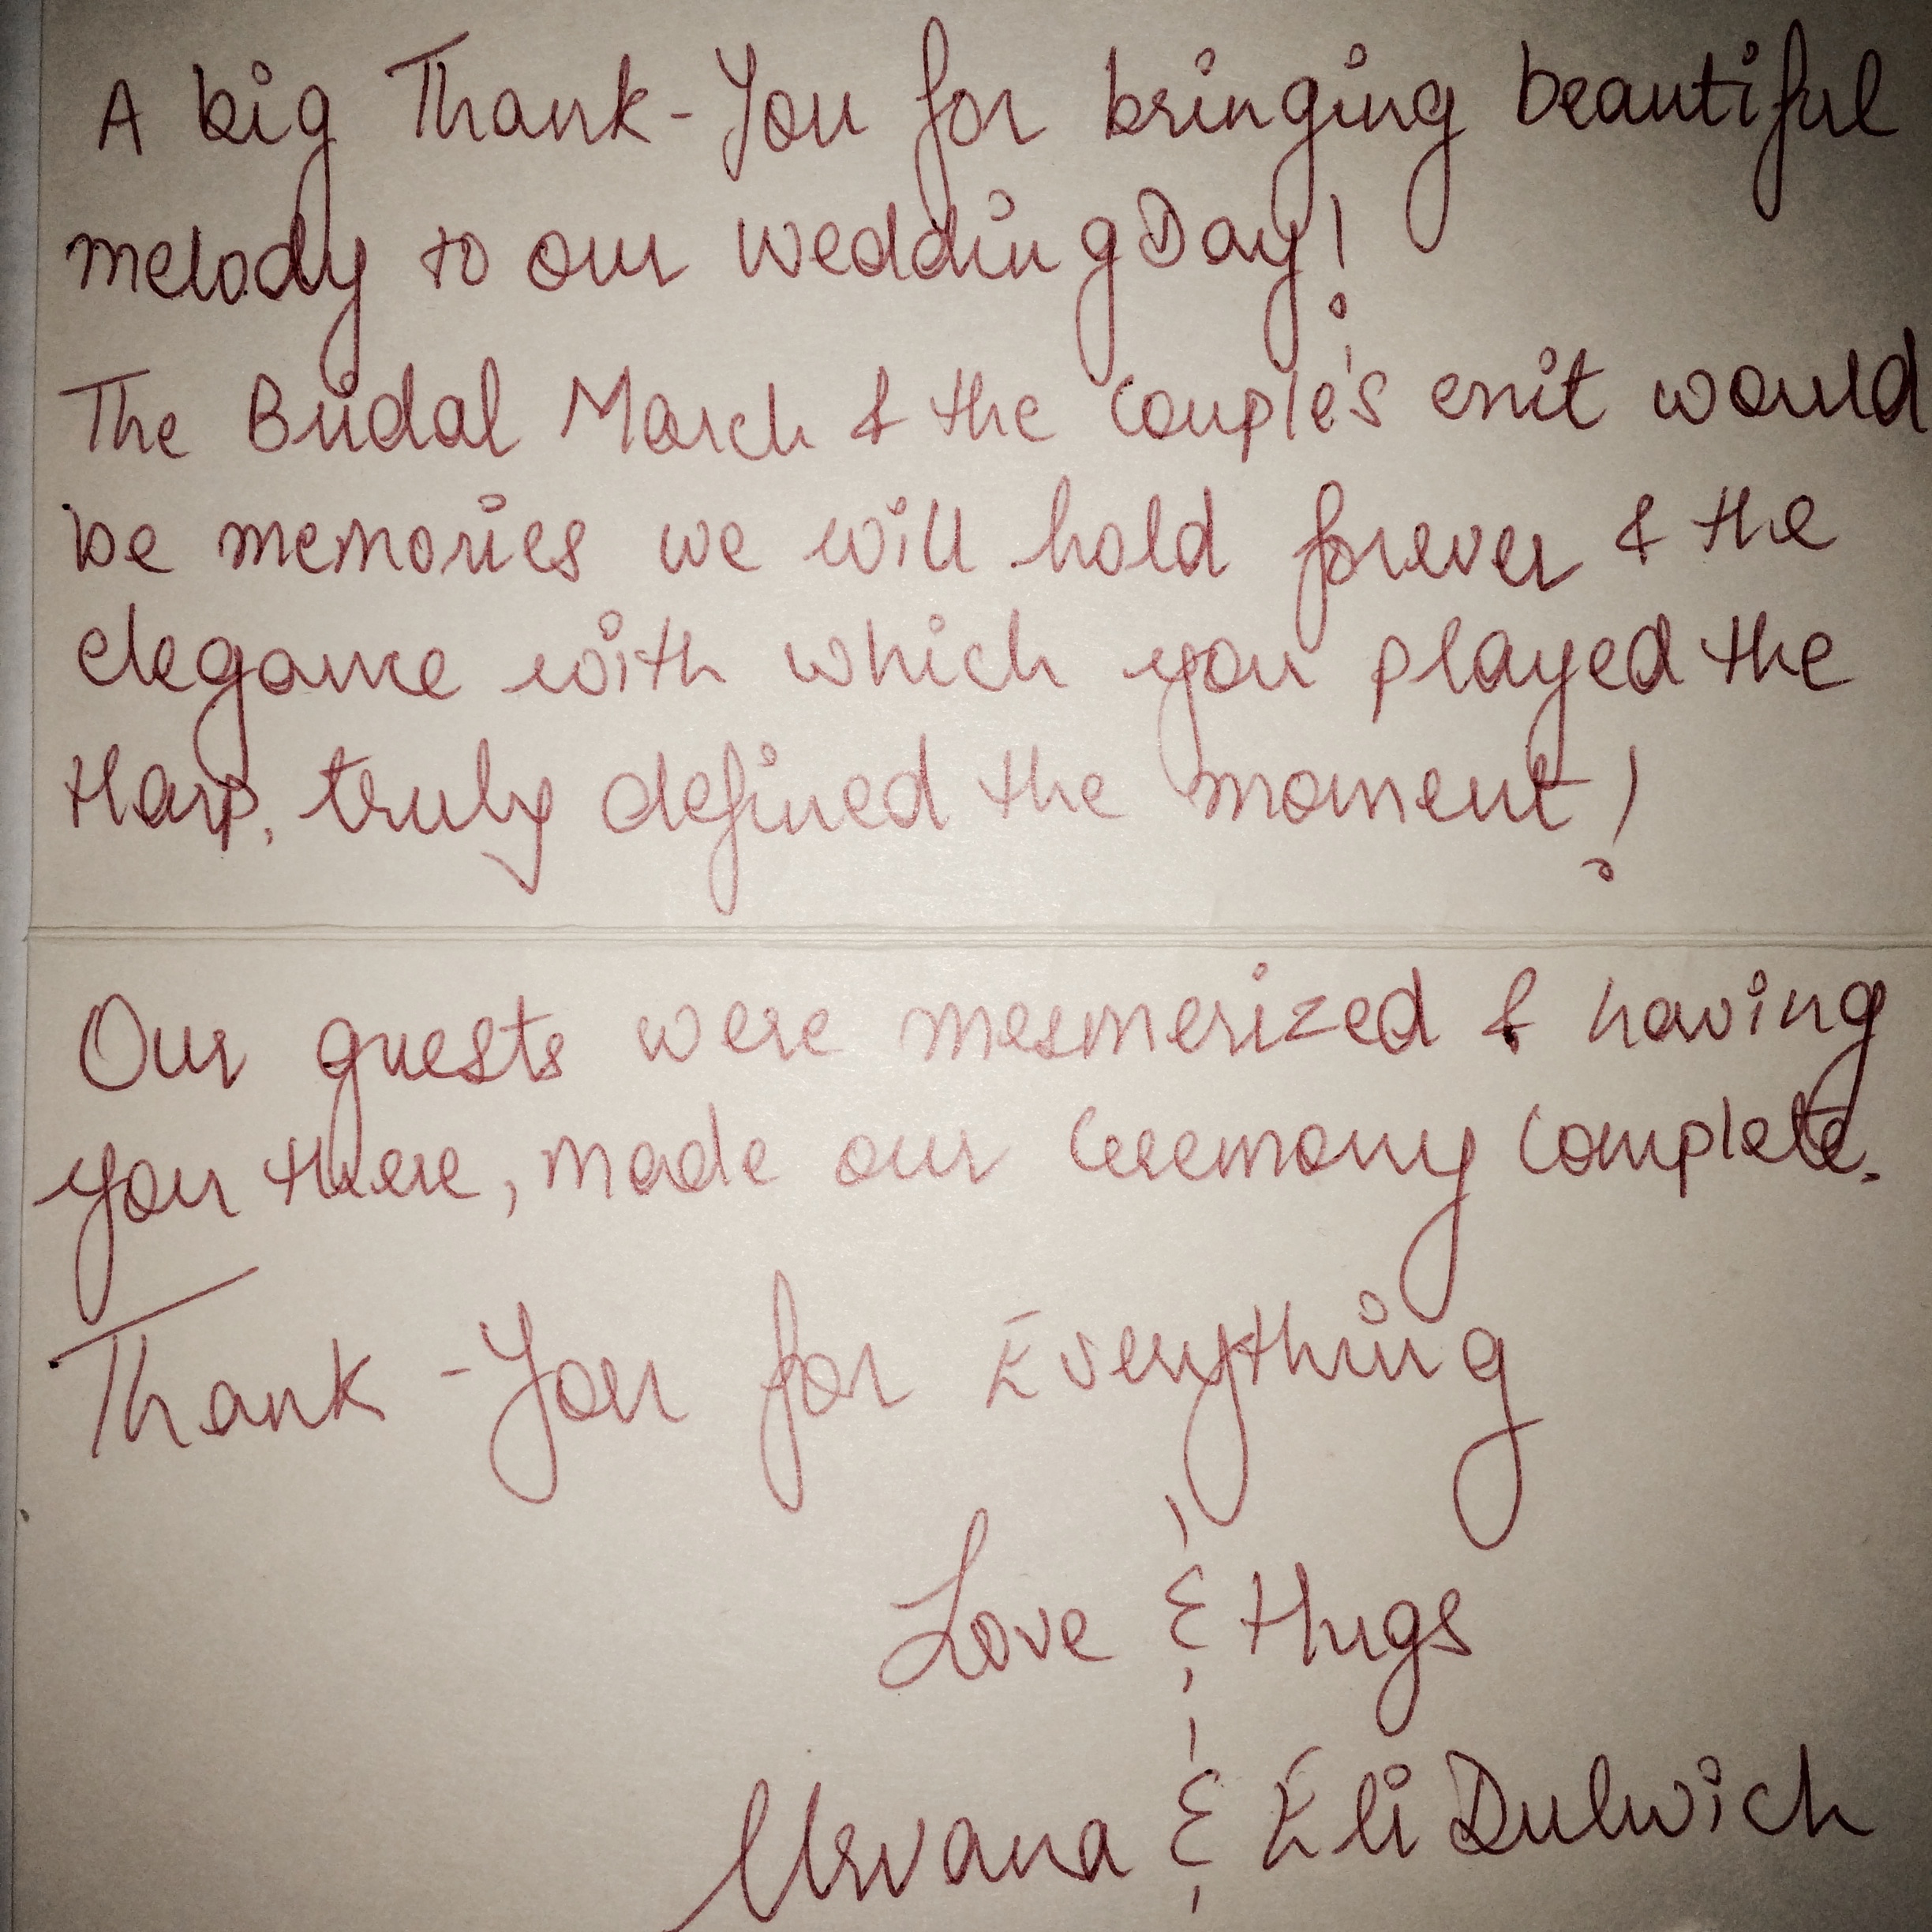 A big Thank-You for bringing beautiful
melody to our wedding Day!
The Bridal March & the Couple's exit would
be memories we will hold forever & the
elegance with which you played the
Harp, truly defined the moment!
Our guests were mesmerized & having
you there, made our Ceremony Complete.
Thank-You for Everything
Love & Hugs
Urvana & Eli Dulwich